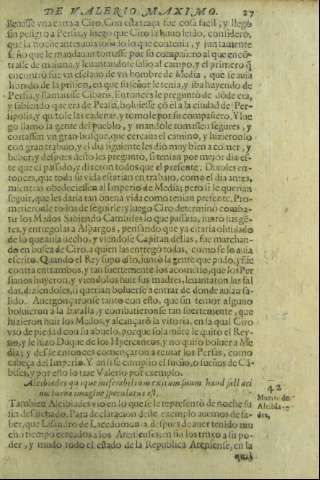 DE VALERIO MAXIMO. 27
lleuasse vna carta a Ciro. Con esta traça fue cosa facil, y llegò
sin peligro a Persia, y luego que Ciro la huuo leido, considerò,
que la noche antes auia
sueño que le mandauan tomasse por su compañero al que encō-
trasse de mañana, y leuantandose salio al campo, y el primero q̄
encontrò fue vn esclauo de vn hombre de Media, que se auia
huydo de la prision, en que su señor le tenia, y iba huyendo de
Persia, y llamauase Cibaris. Entonces le preguntò de dōde era,
y sabiendo que era de Persia, boluiose cō el a la ciudad de Per-
sipolis, y quitole las cadenas, y tomole por su compañero. Y lue
go llamo la gente del pueblo, y mandole tomassen segures, y
cortassen vn gran bosque, que cercaua el camino, y hizieronlo
con gran trabajo, y el dia siguiente les dio muy bien a comer, y
beber, y despues desto les preguntò, si tenian por mejor dia es-
te que el passado, y dixeron todos que el presente. Dixoles en-
tonces, que toda su vida estarian en trabajo, como el dia antes,
mientras obedeciessen al Imperio de Media; pero si le querian
seguir, que les daria tan buena vida como tenian presente. Pro-
metieronle todos de seguirle, y luego Ciro determinò comba-
tir los Medos. Sabiendo
tes, y entregolas a Alpargos, pensando que ya estaria oluidado
de lo que auia hecho, y viendose Capitan dellas, fue marchan-
do en busca de Ciro, a quien las entregò todas, como se lo auia
escrito. Quando el Rey supo esto, juntò la gente que pudo, y fue
contra entrambos, y tan fuertemente los acometio, que los Per
sianos huyeron, y viendolos huir sus madres, leuantaron las fal
das, diziendoles, si querian boluerse a entrar de donde auian sa-
lido. Auergonçaronse tanto con esto, que sin temor alguno
boluieron a la batalla, y combatieronse tan fuertemente, que
hizieron huir los Medos, y alcançarō la vitoria, en la qual Ciro
vsò de piedad con su abuelo, porque solamente le quitò el Rey-
no, y le hizo Duque de los Hyercaneos, y no quiso boluer a Me
dia; y desde entonces començaron a reinar los Persas, como
cabeça del Imperio. Y ansi se cumplio el sueño, o sueños de Cā-
bises, y por esso lo trae Valerio por exemplo.
Alcibiades quoque miserabilem exitum suum haud fallaci
nocturna imagine speculatus est.
Tambien Alcibiades vio en lo que se le representò de noche su
fin desdichado. Para declaracion deste exemplo auemos de sa-
ber, que Lisandro de Lacedemonia, despues de auer tenido mu
cho tiempo cercados a los Atenienses, en fin los truxo a su po-
der, y mudò todo el estado de la Republica Ateniense, en la
42
Muerte de
Alcibia-
des.